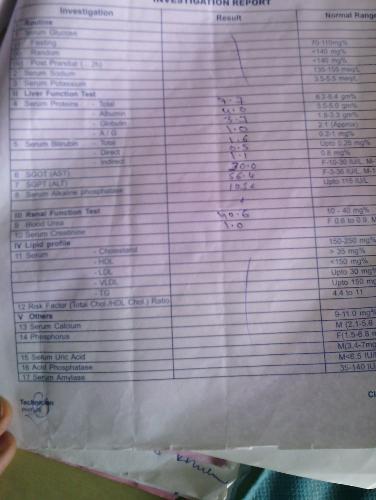 INVESTIGATION REPORT
Investigation Result Normal Rang
I Routine
1 Serum Glucose
Fasting 70-110mg%
Random <140 mg%
Post Prandial <140 mg%
2 Serum Sodium 135-155 meq/L
3 Serum Potassium 3.5-5.5 meq/L
II Liver Function Test
4 Serum Proteins - Total 7.7
- Albumin 4.0
- Globulin 3.7
- A / G 1.0 2:1 (Approx)
5 Serum Bilirubin - Total 1.6
- Direct 0.5 Upto 0.25 mg%
- Indirect 1.1 0.8 mg%
6 SGOT (AST) F-10-30 IU/L, M-1
7 SGPT (ALT) 56.4
8 Serum Alkaline phosphatase Upto 115 IU/L
III Renal Function Test
9 Blood Urea 40.6 10 - 40 mg%
10 Serum Creatinine 1.0 F 0.6 to 0.9, M
IV Lipid profile
11 Serum - Cholesterol 150-250 mg%
- HDL > 35 mg%
- LDL <150 mg%
- VLDL Upto 30 mg
- TG Upto 150 mg
12 Risk Factor (Total Chol./HDL Chol.) Ratio 4.4 to 11
V Others
13 Serum Calcium 9-11.0 mg%
14 Phosphorus M (2.1-5.6
F(1.5-6.8 m
15 Serum Uric Acid M(3.4-7mg
16 Acid Phosphatase M<6.5 IU/
17 Serum Amylase 35-140 IU
Technician